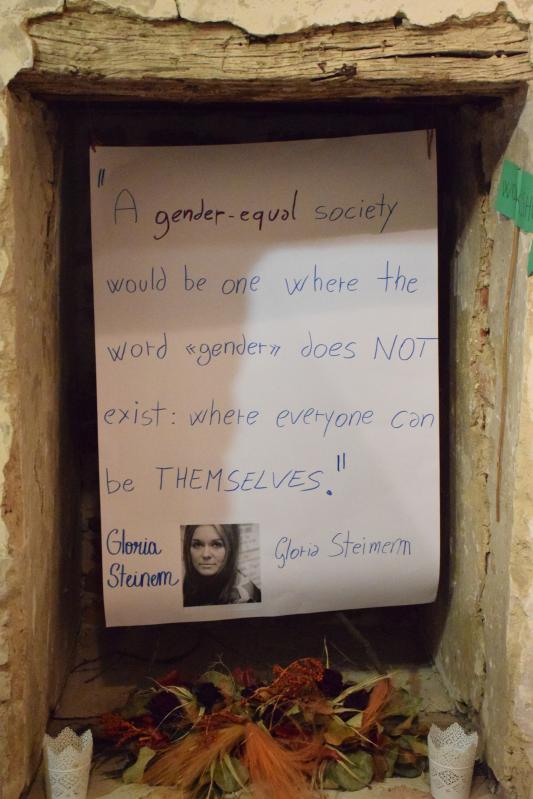 " A gender-equal society
would be one where the
word «gender» does NOT
exist: where everyone can
be THEMSELVES."
Gloria
Steinem
Gloria Steimerm